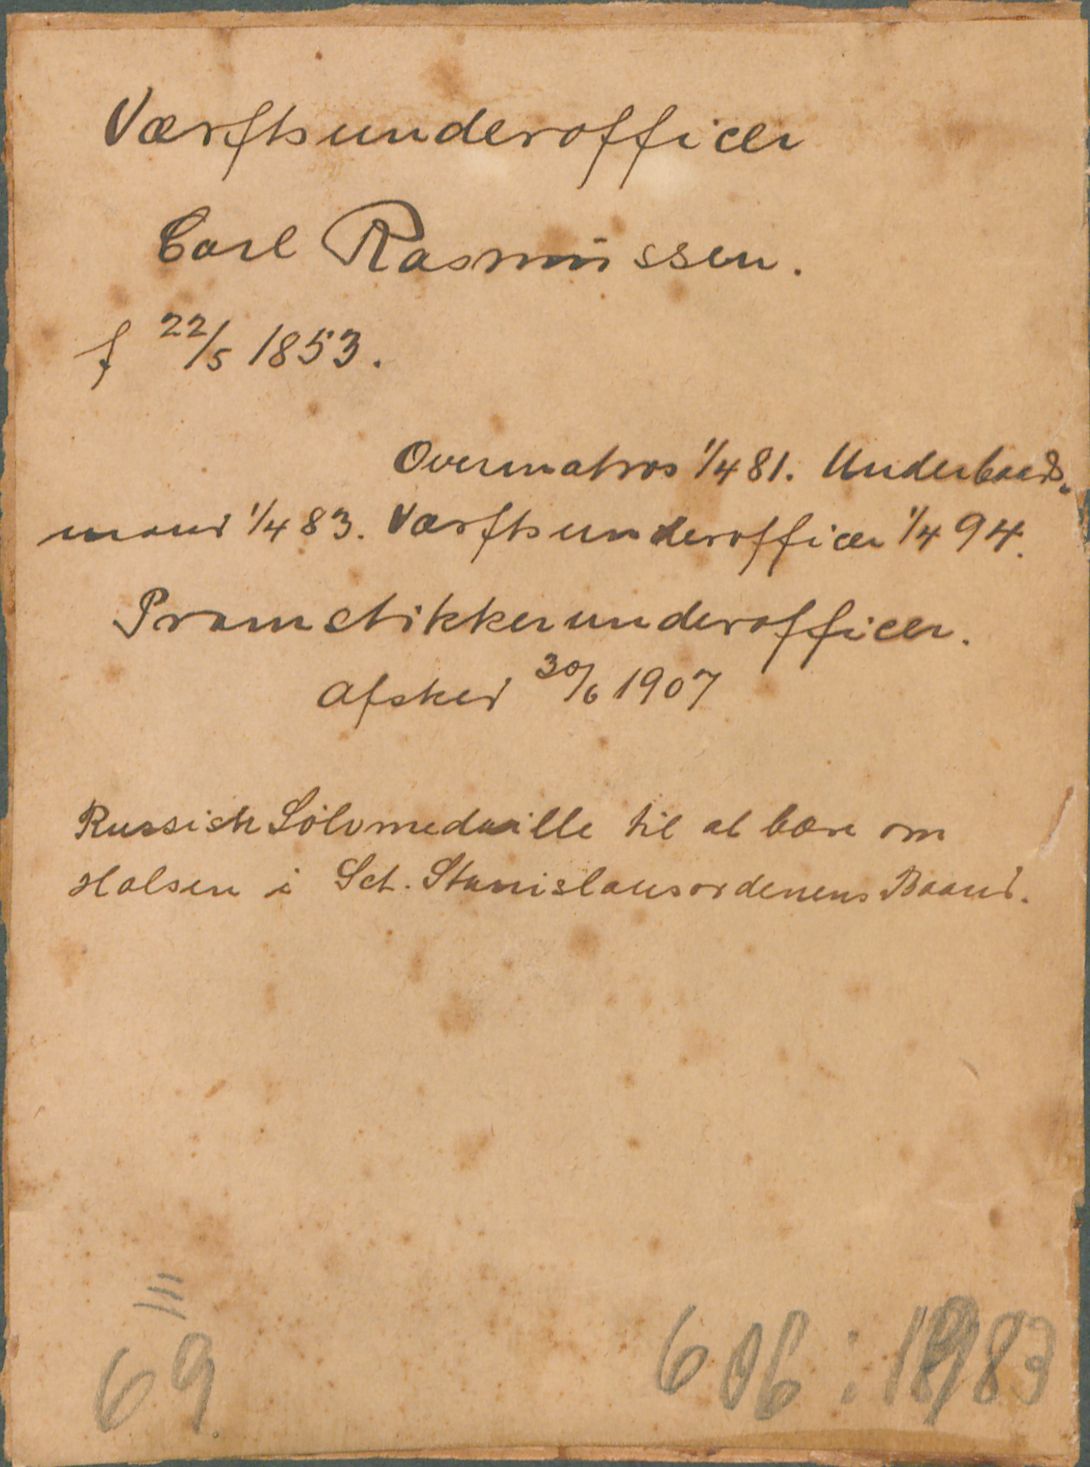 Værftsunderofficer
Carl Rasmussen.
f 22/5 1853.
Overmatros 1/4 81. Underbaads-
mand 1/4 83. Værftsunderofficer 1/4 94.
Pramstikkerunderofficer.
Afsked 30/6 1907
Russisk Sölvmedaille til at bære om
Halsen i Sct. Stanislausordenens Baand.
69
606:1983